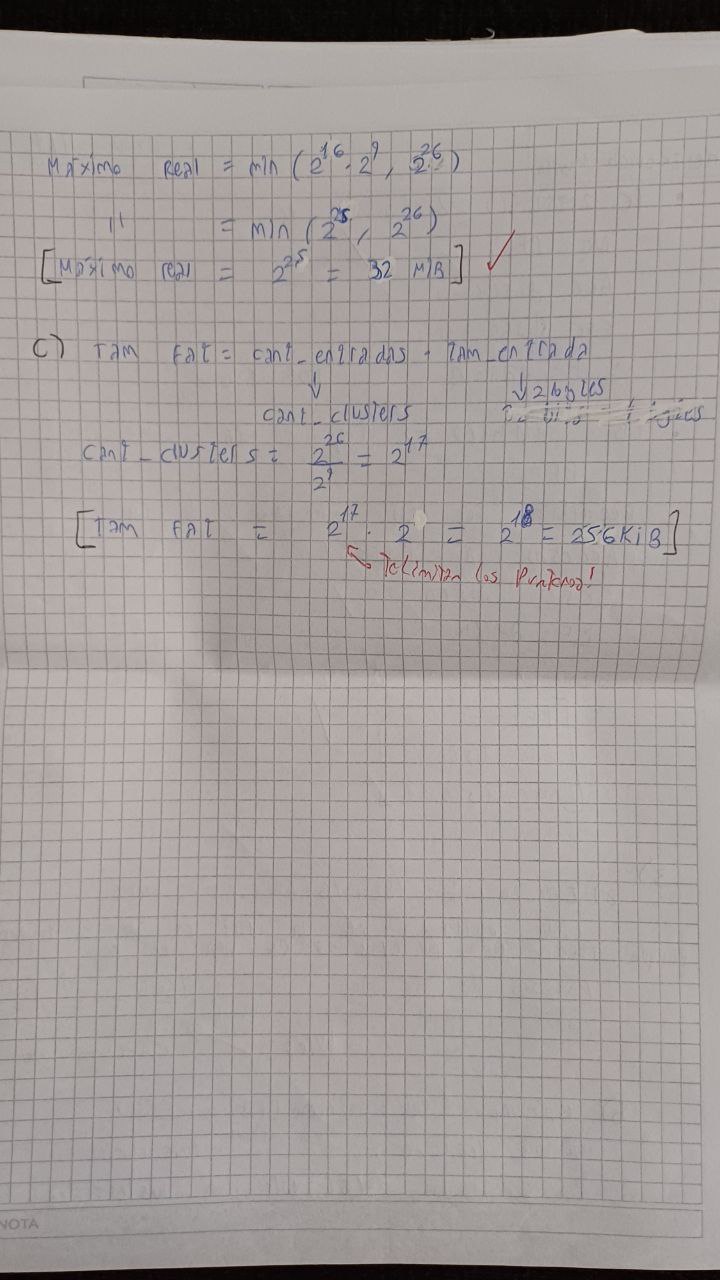 Máximo Real = min (2^16 · 2^9, 2^26)
" = min (2^25, 2^26)
[Máximo real = 2^25 = 32 MiB] ✓
C) Tam FAT = cant_entradas · Tam_entrada
↓ ↓ 2 bytes
cant_clusters
cant_clusters = 2^26 / 2^9 = 2^17
[Tam FAT = 2^17 · 2 = 2^18 = 256 KiB]
Te limitan los punteros!
NOTA